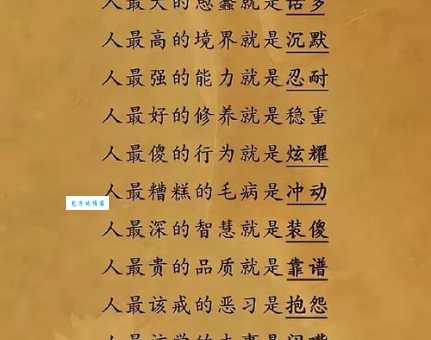 人最大的愚蠢就是话多
人最高的境界就是沉默
人最强的能力就是忍耐
人最好的修养就是稳重
人最傻的行为就是炫耀
人最糟糕的毛病就是冲动
人最深的智慧就是装傻
人最贵的品质就是靠谱
人最该戒的恶习是抱怨